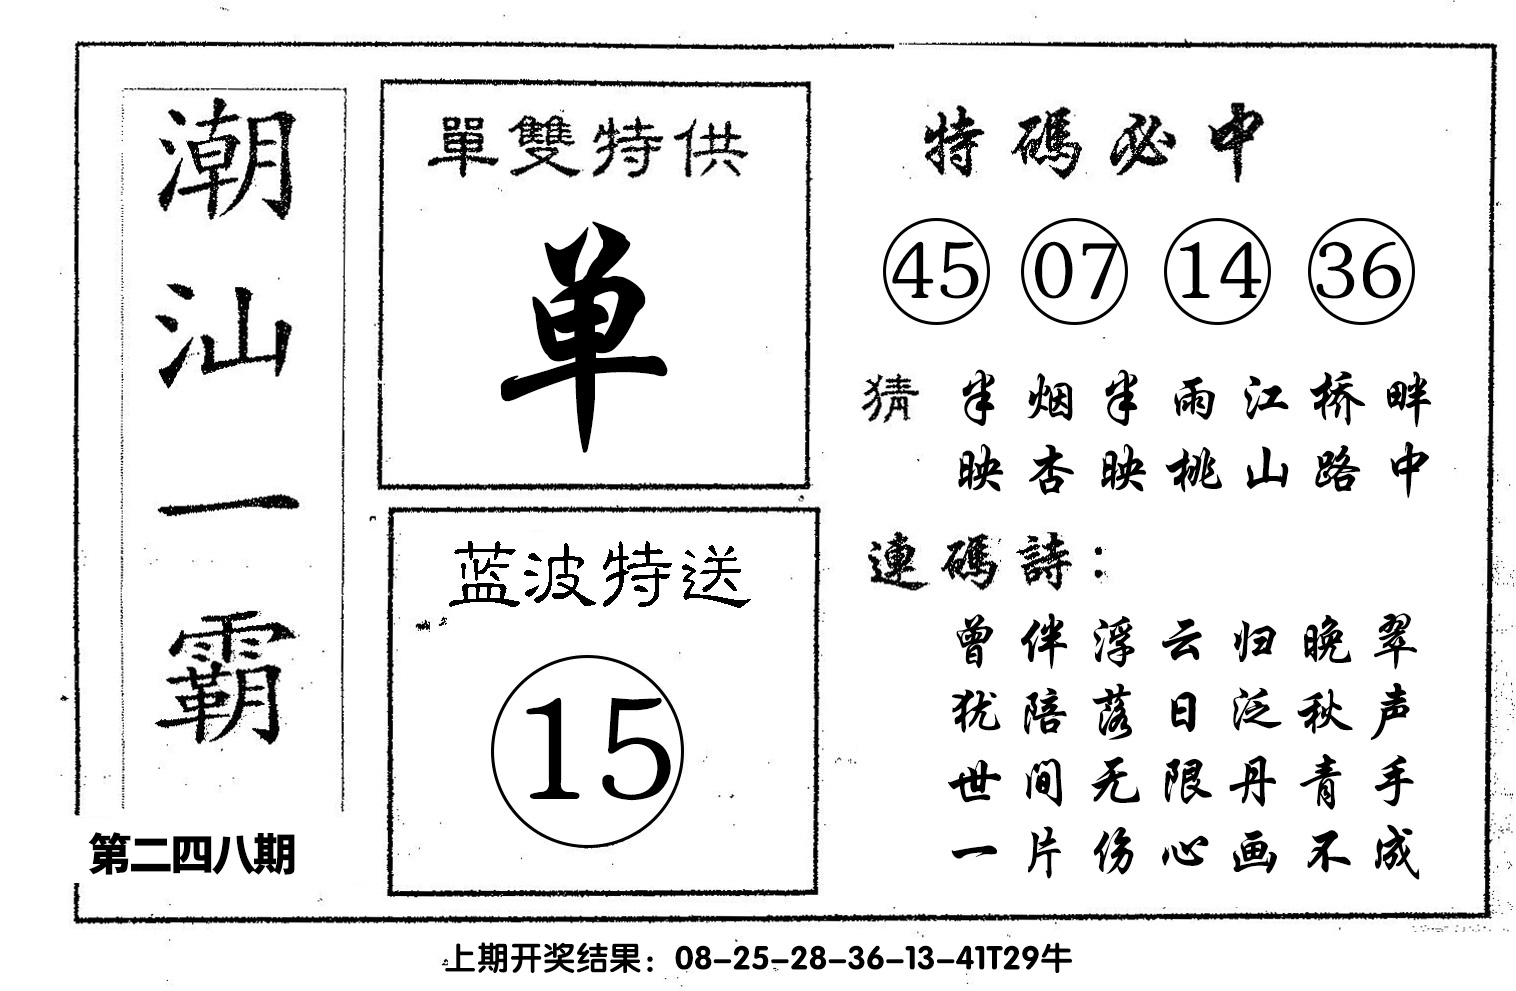 潮汕一霸
第二四八期
單雙特供
单
蓝波特送
15
特碼必中
45 07 14 36
猜 半烟半雨江桥畔
映杏映桃山路中
連碼詩：
曾伴浮云归晚翠
犹陪落日泛秋声
世间无限丹青手
一片伤心画不成
上期开奖结果：08-25-28-36-13-41T29牛